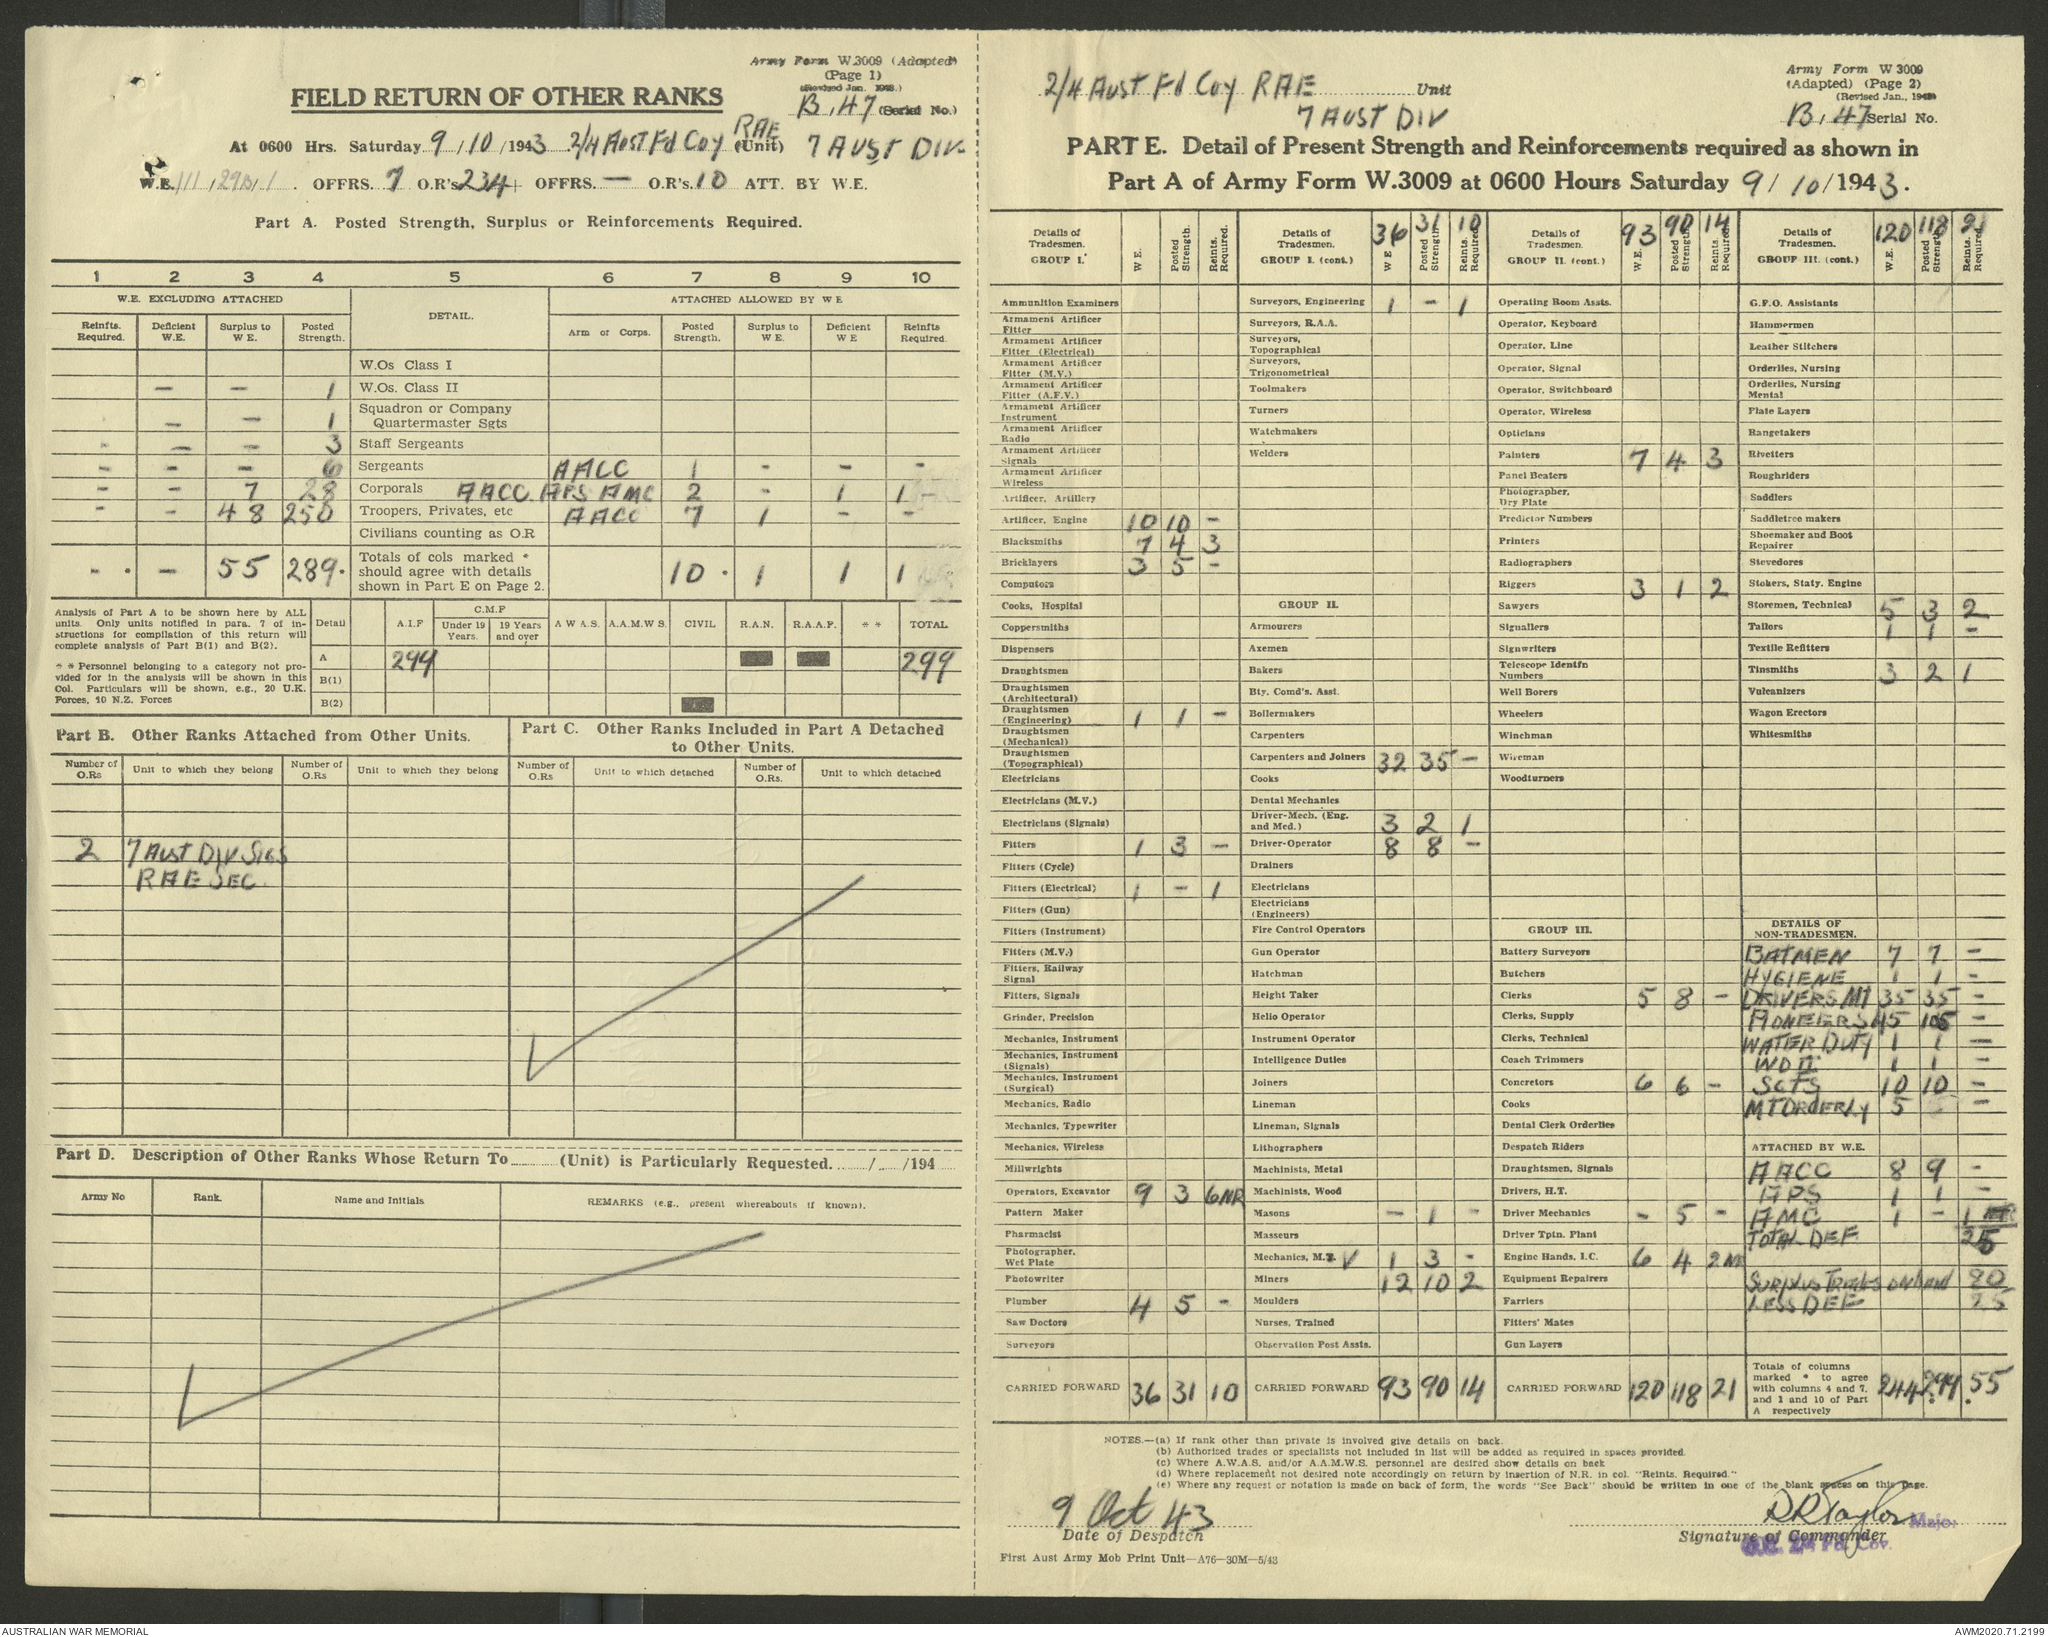 Army Form W.3009 (Adapted)
(Page 1)
(Revised Jan. 1943.)
FIELD RETURN OF OTHER RANKS
B.47 (Serial No.)
At 0600 Hrs. Saturday 9/10/1943 2/4 Aust Fd Coy RAE (Unit) 7 AUST DIV.
W.E. III/29B/1. OFFRS. 7 O.R's. 234 + OFFRS. — O.R's. 10 ATT. BY W.E.
Part A. Posted Strength, Surplus or Reinforcements Required.
1 2 3 4 5 6 7 8 9 10
W.E. EXCLUDING ATTACHED DETAIL. ATTACHED ALLOWED BY W E
Reinfts. Required. Deficient W.E. Surplus to W E. Posted Strength. Arm or Corps. Posted Strength. Surplus to W E. Deficient W E Reinfts Required.
W.Os Class I
— — 1 W.Os. Class II
— — 1 Squadron or Company Quartermaster Sgts
- — — 3 Staff Sergeants
- - - 6 Sergeants AACC 1 - - -
- - 7 28 Corporals AACC APS AMC 2 - 1 1
- - 48 250 Troopers, Privates, etc AACC 7 1 - -
Civilians counting as O.R
- — 55 289 Totals of cols marked * should agree with details shown in Part E on Page 2. 10 1 1 1
Analysis of Part A to be shown here by ALL
units. Only units notified in para. 7 of in-
structions for compilation of this return will
complete analysis of Part B(1) and B(2).
* * Personnel belonging to a category not pro-
vided for in the analysis will be shown in this
Col. Particulars will be shown, e.g., 20 U.K.
Forces, 10 N.Z. Forces
Detail A.I.F C.M.F Under 19 Years. 19 Years and over A W A S. A.A.M.W S. CIVIL R.A.N. R.A.A.F. * * TOTAL
A 299 299
B(1)
B(2)
Part B. Other Ranks Attached from Other Units.
Part C. Other Ranks Included in Part A Detached to Other Units.
Number of O.Rs Unit to which they belong Number of O.Rs Unit to which they belong Number of O.Rs Unit to which detached Number of O.Rs. Unit to which detached
2 7 Aust Div Sigs
RAE SEC.
Part D. Description of Other Ranks Whose Return To (Unit) is Particularly Requested. / /194
Army No Rank. Name and Initials REMARKS (e.g., present whereabouts if known).
2/4 Aust Fd Coy RAE Unit
7 AUST DIV
Army Form W 3009
(Adapted) (Page 2)
(Revised Jan., 1943)
B.47 Serial No.
PART E. Detail of Present Strength and Reinforcements required as shown in
Part A of Army Form W.3009 at 0600 Hours Saturday 9/10/1943.
Details of Tradesmen. GROUP I. W E. Posted Strength. Reints. Required.
Ammunition Examiners
Armament Artificer Fitter
Armament Artificer Fitter (Electrical)
Armament Artificer Fitter (M.V.)
Armament Artificer Fitter (A.F.V.)
Armament Artificer Instrument
Armament Artificer Radio
Armament Artificer Signals
Armament Artificer Wireless
Artificer, Artillery
Artificer, Engine 10 10 -
Blacksmiths 7 4 3
Bricklayers 3 5 -
Computors
Cooks, Hospital
Coppersmiths
Dispensers
Draughtsmen
Draughtsmen (Architectural)
Draughtsmen (Engineering) 1 1 -
Draughtsmen (Mechanical)
Draughtsmen (Topographical)
Electricians
Electricians (M.V.)
Electricians (Signals)
Fitters 1 3 -
Fitters (Cycle)
Fitters (Electrical) 1 - 1
Fitters (Gun)
Fitters (Instrument)
Fitters (M.V.)
Fitters, Railway Signal
Fitters, Signals
Grinder, Precision
Mechanics, Instrument
Mechanics, Instrument (Signals)
Mechanics, Instrument (Surgical)
Mechanics, Radio
Mechanics, Typewriter
Mechanics, Wireless
Millwrights
Operators, Excavator 9 3 6NR
Pattern Maker
Pharmacist
Photographer, Wet Plate
Photowriter
Plumber 4 5 -
Saw Doctors
Surveyors
CARRIED FORWARD 36 31 10
Details of Tradesmen. GROUP I. (cont.) 36 W E 31 Posted Strength 10 Reints. Required.
Surveyors, Engineering 1 - 1
Surveyors, R.A.A.
Surveyors, Topographical
Surveyors, Trigonometrical
Toolmakers
Turners
Watchmakers
Welders
GROUP II.
Armourers
Axemen
Bakers
Bty. Comd's. Asst.
Boilermakers
Carpenters
Carpenters and Joiners 32 35 -
Cooks
Dental Mechanics
Driver-Mech. (Eng. and Med.) 3 2 1
Driver-Operator 8 8 -
Drainers
Electricians
Electricians (Engineers)
Fire Control Operators
Gun Operator
Hatchman
Height Taker
Helio Operator
Instrument Operator
Intelligence Duties
Joiners
Lineman
Lineman, Signals
Lithographers
Machinists, Metal
Machinists, Wood
Masons - 1 -
Masseurs
Mechanics, M.V 1 3 -
Miners 12 10 2
Moulders
Nurses, Trained
Observation Post Assts.
CARRIED FORWARD 93 90 14
Details of Tradesmen. GROUP II. (cont.) 93 W.E. 90 Posted Strength 14 Reints. Required
Operating Room Assts.
Operator, Keyboard
Operator, Line
Operator, Signal
Operator, Switchboard
Operator, Wireless
Opticians
Painters 7 4 3
Panel Beaters
Photographer, Dry Plate
Predictor Numbers
Printers
Radiographers
Riggers 3 1 2
Sawyers
Signallers
Signwriters
Telescope Identfn Numbers
Well Borers
Wheelers
Winchman
Wireman
Woodturners
GROUP III.
Battery Surveyors
Butchers
Clerks 5 8 -
Clerks, Supply
Clerks, Technical
Coach Trimmers
Concretors 6 6 -
Cooks
Dental Clerk Orderlies
Despatch Riders
Draughtsmen, Signals
Drivers, H.T.
Driver Mechanics - 5 -
Driver Tptn. Plant
Engine Hands, I.C. 6 4 2NR
Equipment Repairers
Farriers
Fitters' Mates
Gun Layers
CARRIED FORWARD 120 118 21
Details of Tradesmen. GROUP III. (cont.) 120 W.E. 118 Posted Strength 21 Reints. Required
G.F.O. Assistants
Hammermen
Leather Stitchers
Orderlies, Nursing
Orderlies, Nursing Mental
Plate Layers
Rangetakers
Rivetters
Roughriders
Saddlers
Saddletree makers
Shoemaker and Boot Repairer
Stevedores
Stokers, Staty. Engine
Storemen, Technical 5 3 2
Tailors 1 1 -
Textile Refitters
Tinsmiths 3 2 1
Vulcanizers
Wagon Erectors
Whitesmiths
DETAILS OF NON-TRADESMEN.
BATMEN 7 7 -
HYGIENE 1 1 -
DRIVERS MT 35 35 -
PIONEERS 45 105 -
WATER DUTY 1 1 -
WO II 1 1 -
SGTS 10 10 -
MT ORDERLY 5 -
ATTACHED BY W.E.
AACC 8 9 -
APS 1 1 -
AMC 1 - 1
TOTAL DEF 25
SURPLUS TRADES ON HAND 80
LESS DEF 25
Totals of columns marked * to agree with columns 4 and 7, and 1 and 10 of Part A respectively 244 299 55
NOTES.—(a) If rank other than private is involved give details on back.
(b) Authorised trades or specialists not included in list will be added as required in spaces provided.
(c) Where A.W.A.S. and/or A.A.M.W.S. personnel are desired show details on back
(d) Where replacement not desired note accordingly on return by insertion of N.R. in col. "Reints. Required."
(e) Where any request or notation is made on back of form, the words "See Back" should be written in one of the blank spaces on this page.
9 Oct 43
Date of Despatch
RRTaylor Major
Signature of Commander
O.C. 2/4 Fd. Coy.
First Aust Army Mob Print Unit—A76—30M—5/43
AUSTRALIAN WAR MEMORIAL
AWM2020.71.2199